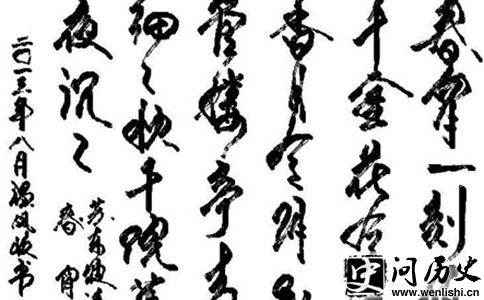 春宵一刻
千金花有
香月有阴
管楼亭声
细々秋千院落
夜沉々
苏东坡诗
春宵
二〇一三年八月
史
问历史
www.wenlishi.cn